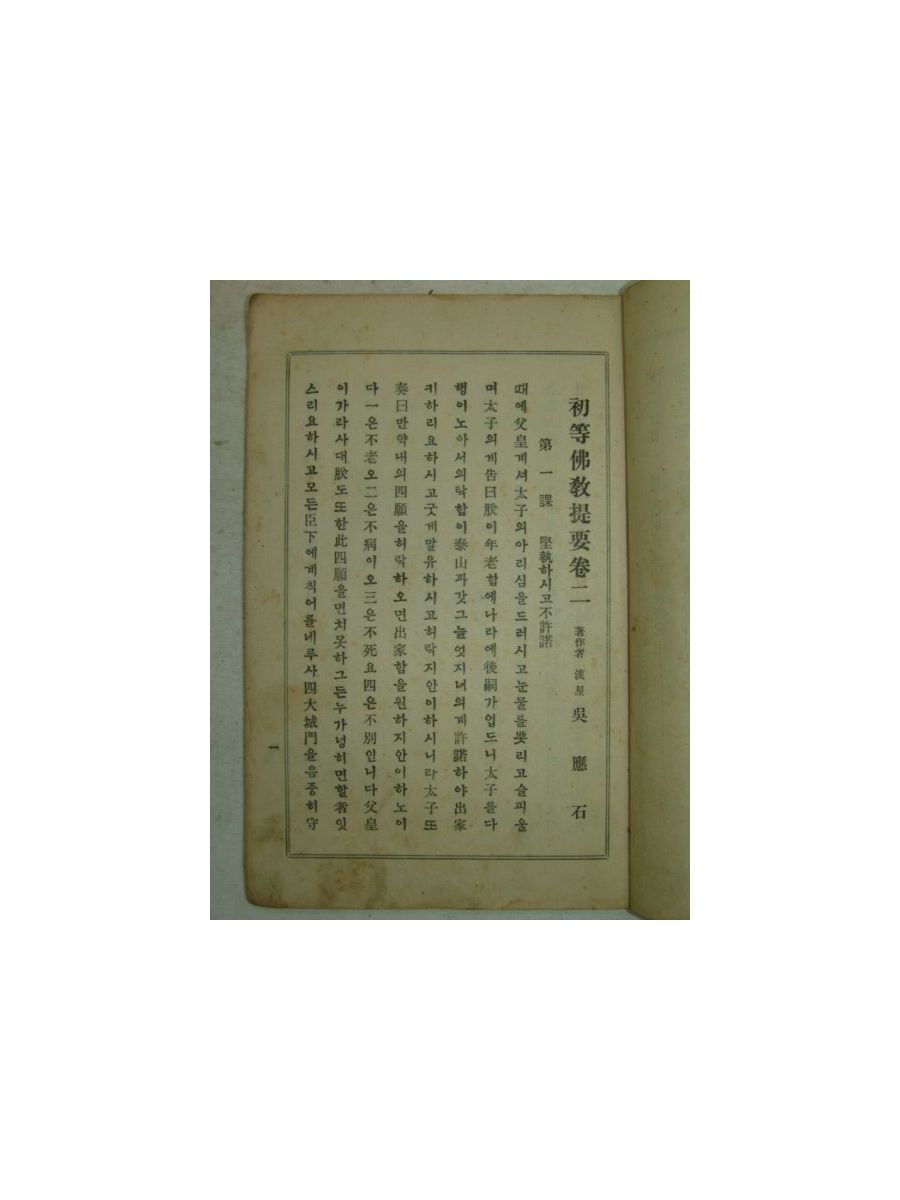 初等佛敎提要卷二 著作者 漢星 吳應石
第一課 堅執하시고不許諾
때에父皇게셔太子의아리심을드러시고눈물를뿌리고슬피울
며太子의게告曰朕이年老함에나라에後嗣가업드니太子를다
행이노아서의탁함이泰山과갓그늘엇지너의게許諾하야出家
키하리요하시고굿게말유하시고허락지안이하시니라太子또
奏曰만약내의四願을허락하오면出家함을원하지안이하노이
다一은不老오二은不病이오三은不死요四은不別인니다父皇
이가라사대朕도또한此四願을면치못하그든누가넝히면할者잇
스리요하시고모든臣下에게칙어를네루사四大城門을음중히守
一